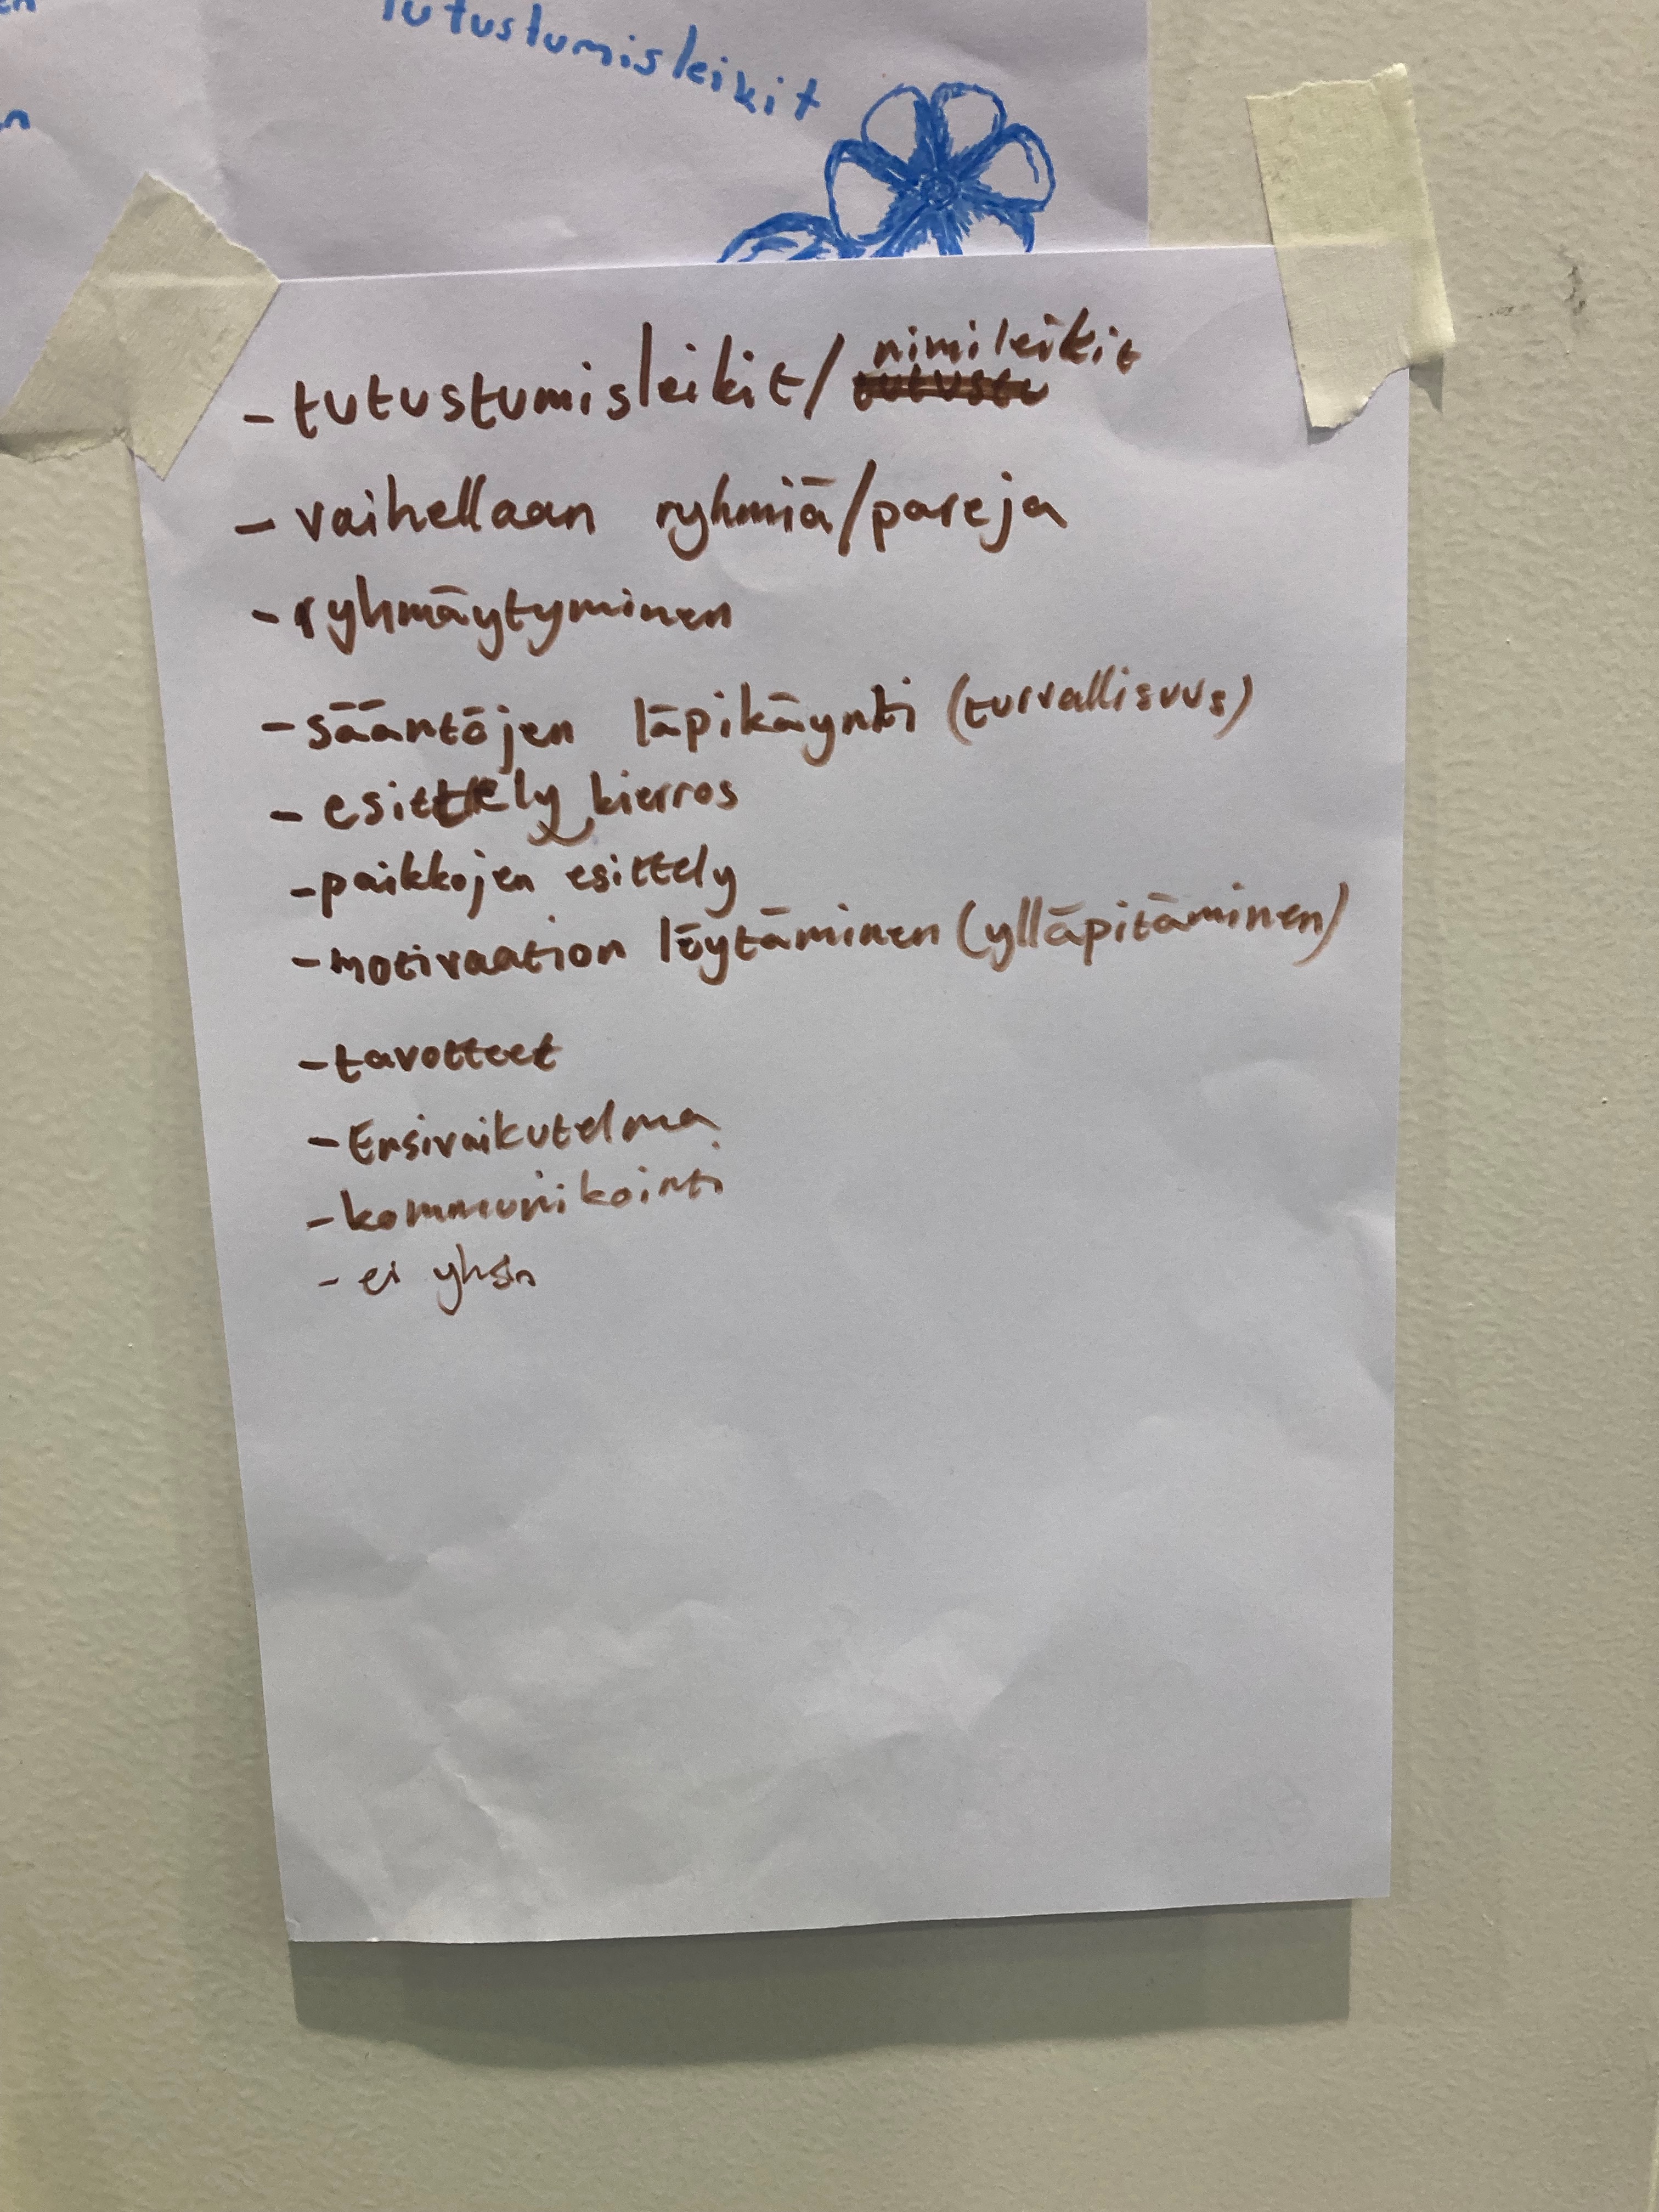 Tutustumisleikit
- tutustumisleikit/ nimileikit
- vaihellaan ryhmiä/pareja
- ryhmäytyminen
- sääntöjen läpikäynti (turvallisuus)
- esittely kierros
- paikkojen esittely
- motivaation löytäminen (ylläpitäminen)
- tavotteet
- Ensivaikutelma
- kommunikointi
- ei yksin